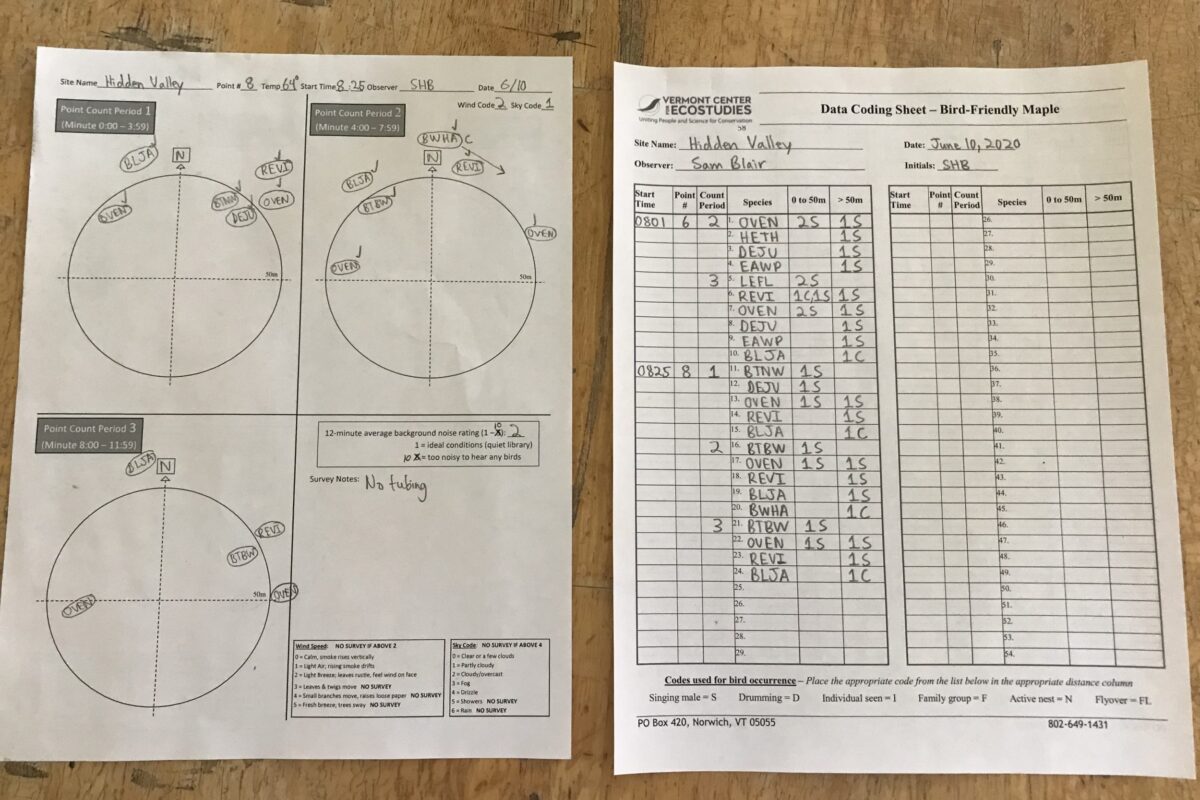 Site Name Hidden Valley Point # 8 Temp 64° Start Time 8:25 Observer SHB Date 6/10
Wind Code 2 Sky Code 1
Point Count Period 1
(Minute 0:00 – 3:59)
BLJA
N
REVI
OVEN
BTNW
OVEN
DEJU
50m
Point Count Period 2
(Minute 4:00 – 7:59)
BWHA C
N
REVI
BLJA
BTBW
OVEN
OVEN
50m
Point Count Period 3
(Minute 8:00 – 11:59)
BLJA
N
REVI
BTBW
50m
OVEN
OVEN
12-minute average background noise rating (1 – 10): 2
1 = ideal conditions (quiet library)
10 = too noisy to hear any birds
Survey Notes: No tubing
Wind Speed: NO SURVEY IF ABOVE 2
0 = Calm, smoke rises vertically
1 = Light Air; rising smoke drifts
2 = Light Breeze; leaves rustle, feel wind on face
3 = Leaves & twigs move NO SURVEY
4 = Small branches move, raises loose paper NO SURVEY
5 = Fresh breeze, trees sway NO SURVEY
Sky Code: NO SURVEY IF ABOVE 4
0 = Clear or a few clouds
1 = Partly cloudy
2 = Cloudy/overcast
3 = Fog
4 = Drizzle
5 = Showers NO SURVEY
6 = Rain NO SURVEY
VERMONT CENTER
FOR ECOSTUDIES
Uniting People and Science for Conservation
Data Coding Sheet – Bird-Friendly Maple
Site Name: Hidden Valley Date: June 10, 2020
Observer: Sam Blair Initials: SHB
Start Time Point # Count Period Species 0 to 50m > 50m
0801 6 2 1. OVEN 2S 1S
2. HETH 1S
3. DEJU 1S
4. EAWP 1S
3 5. LEFL 2S
6. REVI 1C,1S 1S
7. OVEN 2S 1S
8. DEJU 1S
9. EAWP 1S
10. BLJA 1C
0825 8 1 11. BTNW 1S
12. DEJU 1S
13. OVEN 1S 1S
14. REVI 1S
15. BLJA 1C
2 16. BTBW 1S
17. OVEN 1S 1S
18. REVI 1S
19. BLJA 1S
20. BWHA 1C
3 21. BTBW 1S
22. OVEN 1S 1S
23. REVI 1S
24. BLJA 1C
25.
26.
27.
28.
29.
Start Time Point # Count Period Species 0 to 50m > 50m
26.
27.
28.
29.
30.
31.
32.
33.
34.
35.
36.
37.
38.
39.
40.
41.
42.
43.
44.
45.
46.
47.
48.
49.
50.
51.
52.
53.
54.
Codes used for bird occurrence – Place the appropriate code from the list below in the appropriate distance column
Singing male = S Drumming = D Individual seen = I Family group = F Active nest = N Flyover = FL
PO Box 420, Norwich, VT 05055 802-649-1431